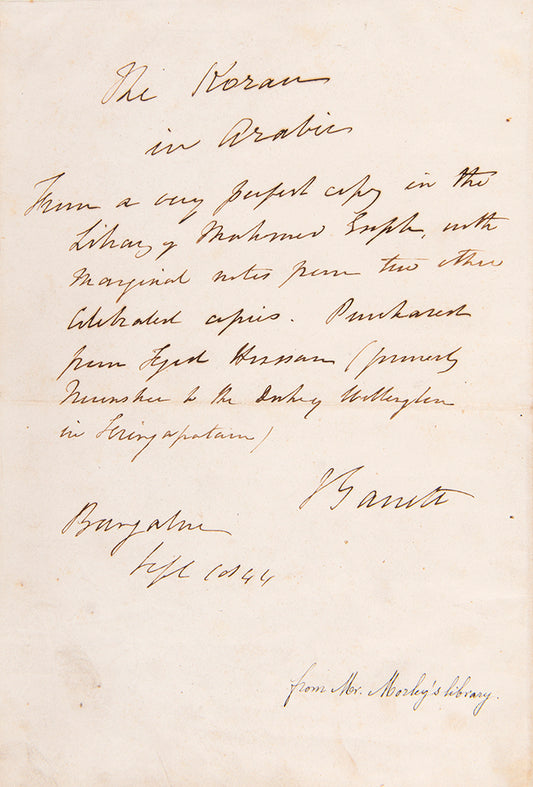 The Koran
in Arabic
From a very perfect copy in the
Library of Mahomed, with
Marginal notes from two other
Celebrated copies. Purchased
from Syed Hussain (formerly
Moonshee to the Duke of Wellington
in Seringapatam)
J Garrett
Bangalore
Sept 1844
from Mr. Morley's library.